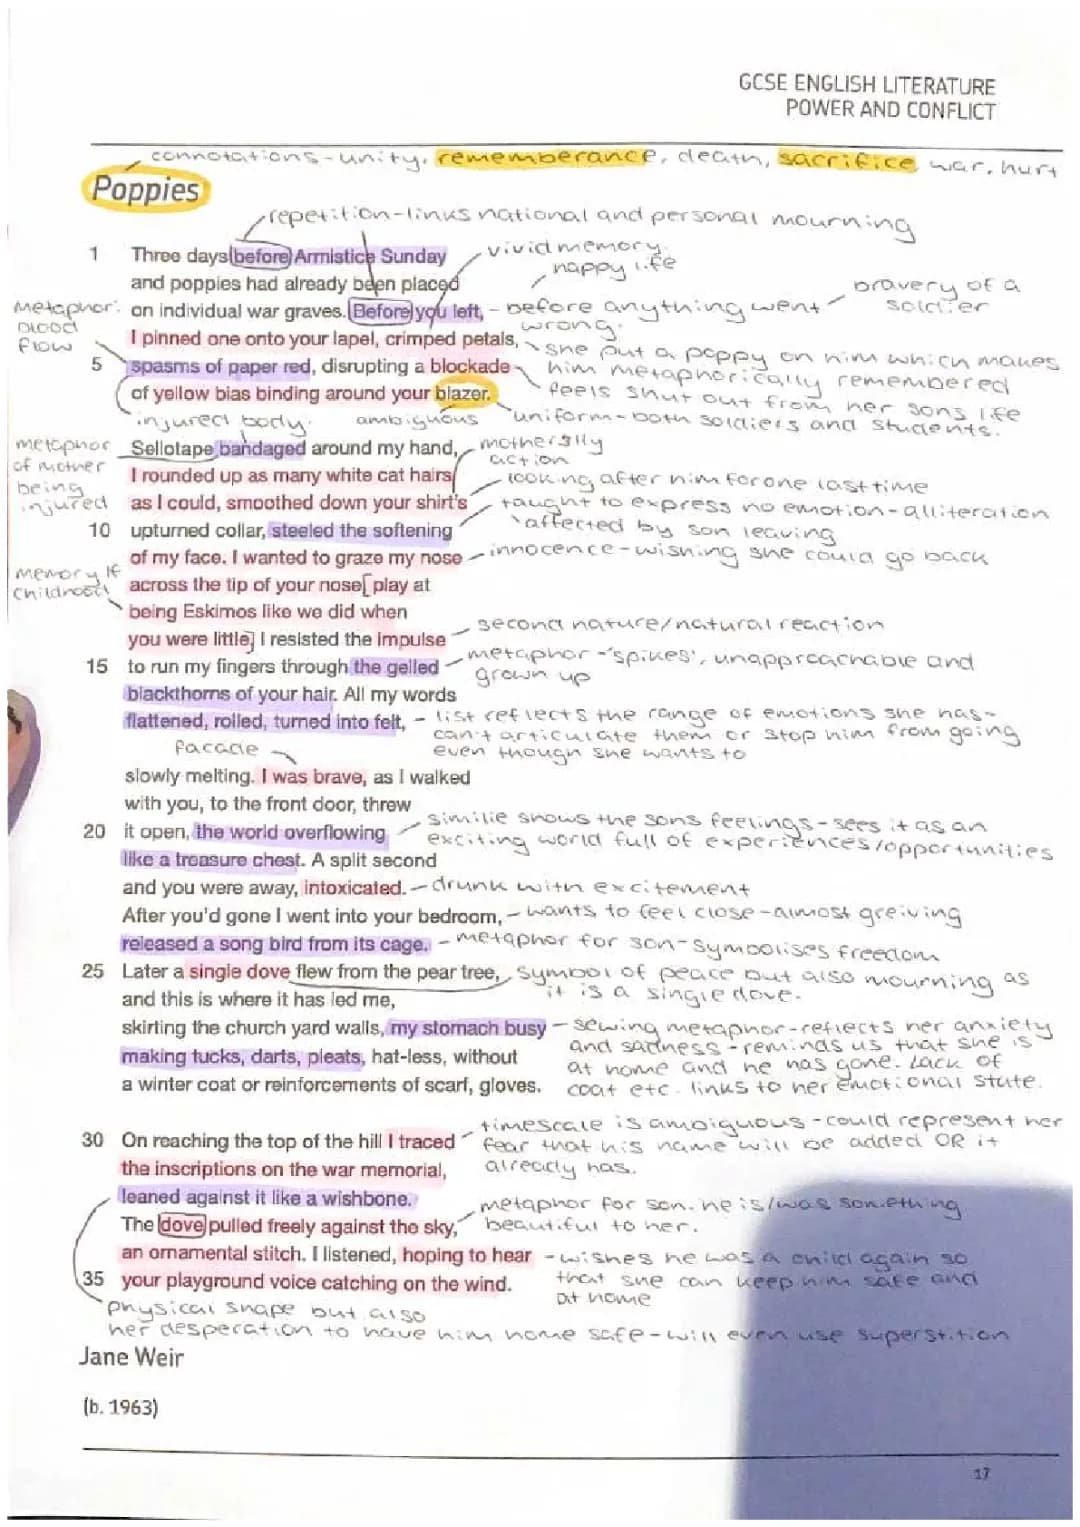 GCSE ENGLISH LITERATURE
POWER AND CONFLICT
connotations - unity, rememberance, death, sacrifice, war, hurt
Poppies
repetition - links national and personal mourning
1 Three days before Armistice Sunday
vivid memory.
happy life
and poppies had already been placed
bravery of a
soldier
metaphor:
blood
flow
on individual war graves. Before you left,
- before anything went
wrong.
I pinned one onto your lapel, crimped petals,
she put a poppy on him which makes
him metaphorically remembered
5 spasms of paper red, disrupting a blockade
feels shut out from her sons life
of yellow bias binding around your blazer.
uniform - both soldiers and students.
injured body.
ambiguous
metaphor
of mother
being
injured
Sellotape bandaged around my hand,
motherly
action
I rounded up as many white cat hairs
looking after him for one last time
as I could, smoothed down your shirt's
taught to express no emotion - alliteration
10 upturned collar, steeled the softening
affected by son leaving
of my face. I wanted to graze my nose
innocence - wishing she could go back
memory of
childhood
across the tip of your nose, play at
being Eskimos like we did when
you were little. I resisted the impulse
second nature/natural reaction
15 to run my fingers through the gelled
metaphor - 'spikes', unapproachable and
grown up
blackthorns of your hair. All my words
flattened, rolled, turned into felt,
- list reflects the range of emotions she has -
can't articulate them or stop him from going
even though she wants to
facade
slowly melting. I was brave, as I walked
with you, to the front door, threw
20 it open, the world overflowing
similie shows the sons feelings - sees it as an
exciting world full of experiences/opportunities
like a treasure chest. A split second
and you were away, intoxicated.
- drunk with excitement
After you'd gone I went into your bedroom,
- wants to feel close - almost greiving
released a song bird from its cage.
- metaphor for son - symbolises freedom
25 Later a single dove flew from the pear tree,
symbol of peace but also mourning as
it is a single dove.
and this is where it has led me,
skirting the church yard walls, my stomach busy
making tucks, darts, pleats, hat-less, without
a winter coat or reinforcements of scarf, gloves.
- sewing metaphor - reflects her anxiety
and sadness - reminds us that she is
at home and he has gone. Lack of
coat etc. links to her emotional state.
30 On reaching the top of the hill I traced
the inscriptions on the war memorial,
timescale is ambiguous - could represent her
fear that his name will be added OR it
already has.
leaned against it like a wishbone.
The dove pulled freely against the sky,
metaphor for son. he is/was something
beautiful to her.
an ornamental stitch. I listened, hoping to hear
35 your playground voice catching on the wind.
- wishes he was a child again so
that she can keep him safe and
at home
physical shape but also
her desperation to have him home safe - will even use superstition
Jane Weir
(b. 1963)
17